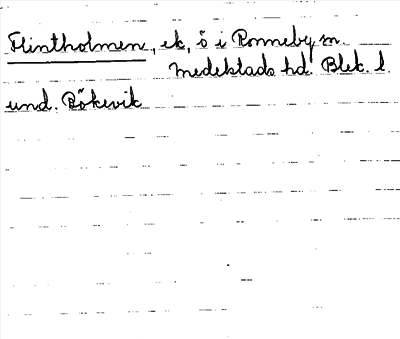 Flintholmen, ek, ö i Ronneby sn.
Medelstads hd. Blek. l.
und. Bökevik